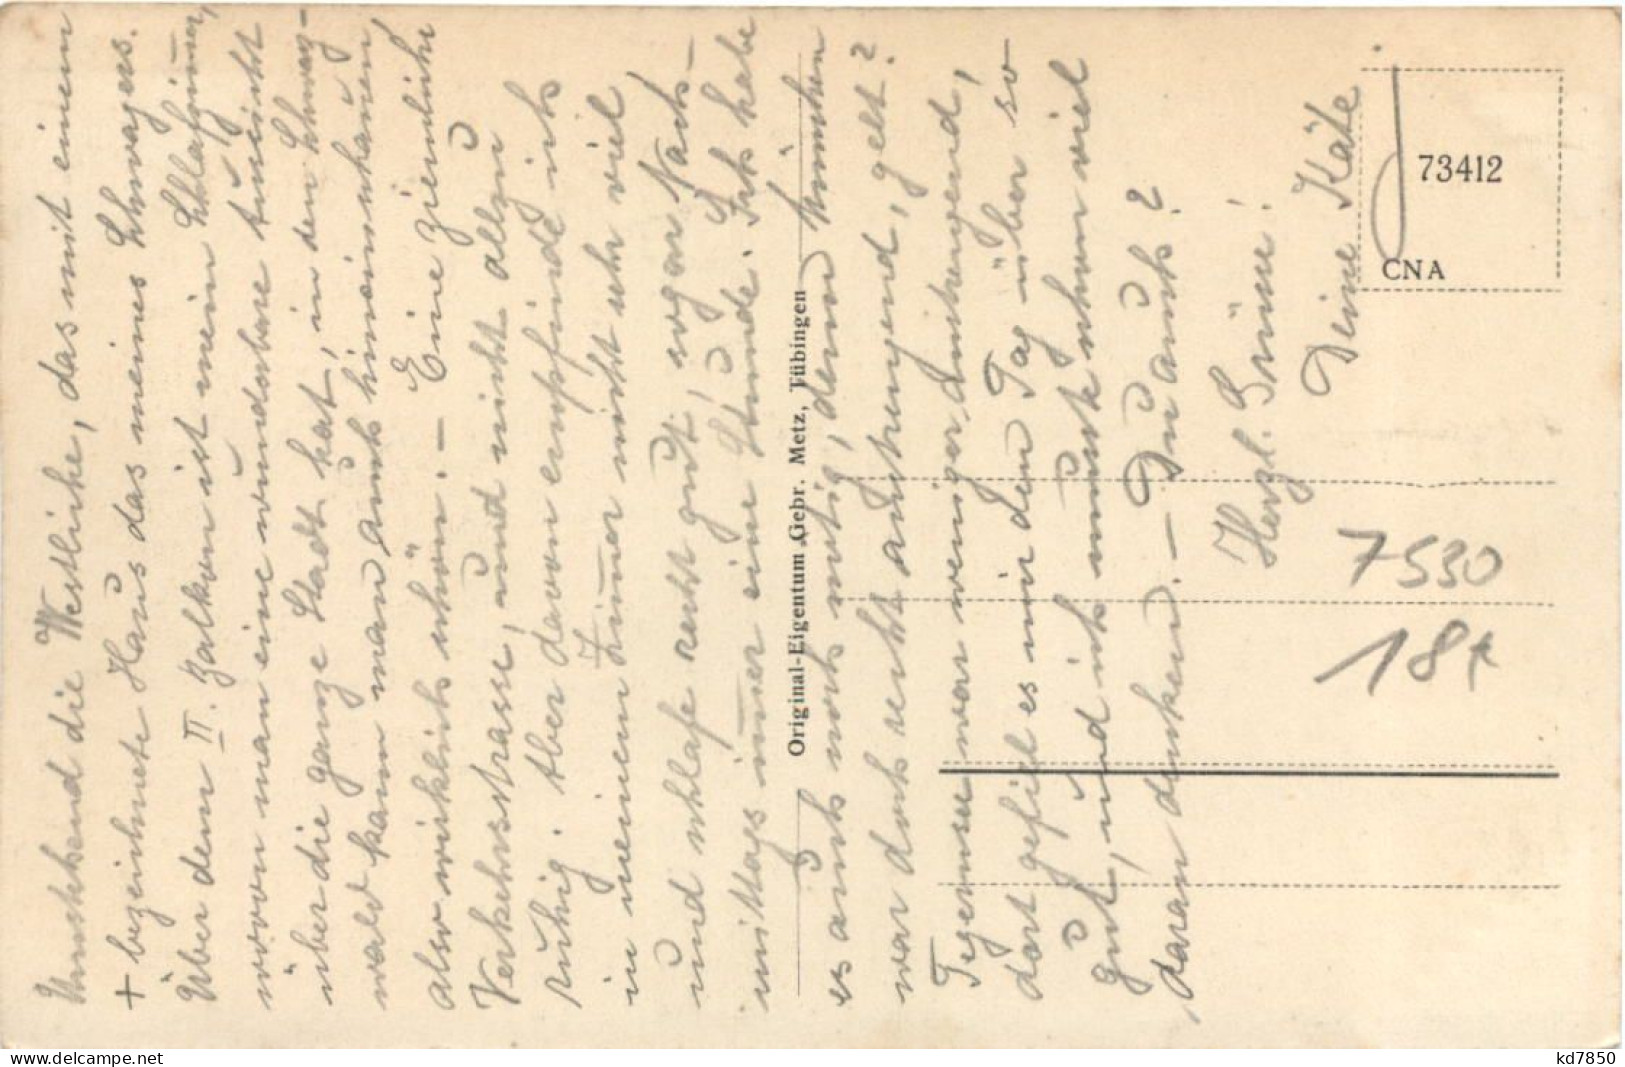 Umstehend die Westliche, das mit einem
+ bezeichnete Haus das meines Schwagers.
Über dem II. Balkon ist mein Schlafzimmer,
wovon man eine wunderbare Aussicht
über die ganze Stadt hat, in den Schwarz-
wald kann man auch hineinschauen,
also wirklich schön. – Eine ziemliche
Verkehrsstrasse, und nicht allzu
ruhig. Aber davon empfinde ich
in meinem Zimmer nicht sehr viel
und schlafe recht gut, sogar Nach-
mittags immer eine Stunde. Ich habe
es auch noch nötig, denn München
war doch recht anstrengend, gelt?
Tegernsee war weniger anstrengend,
dort gefiel es mir den Tag über so
gut, und ich musste schon viel
daran denken. – Du auch?
Herzl. Grüsse!
Deine Käte.
Original-Eigentum Gebr. Metz, Tübingen
73412
CNA
7530
18